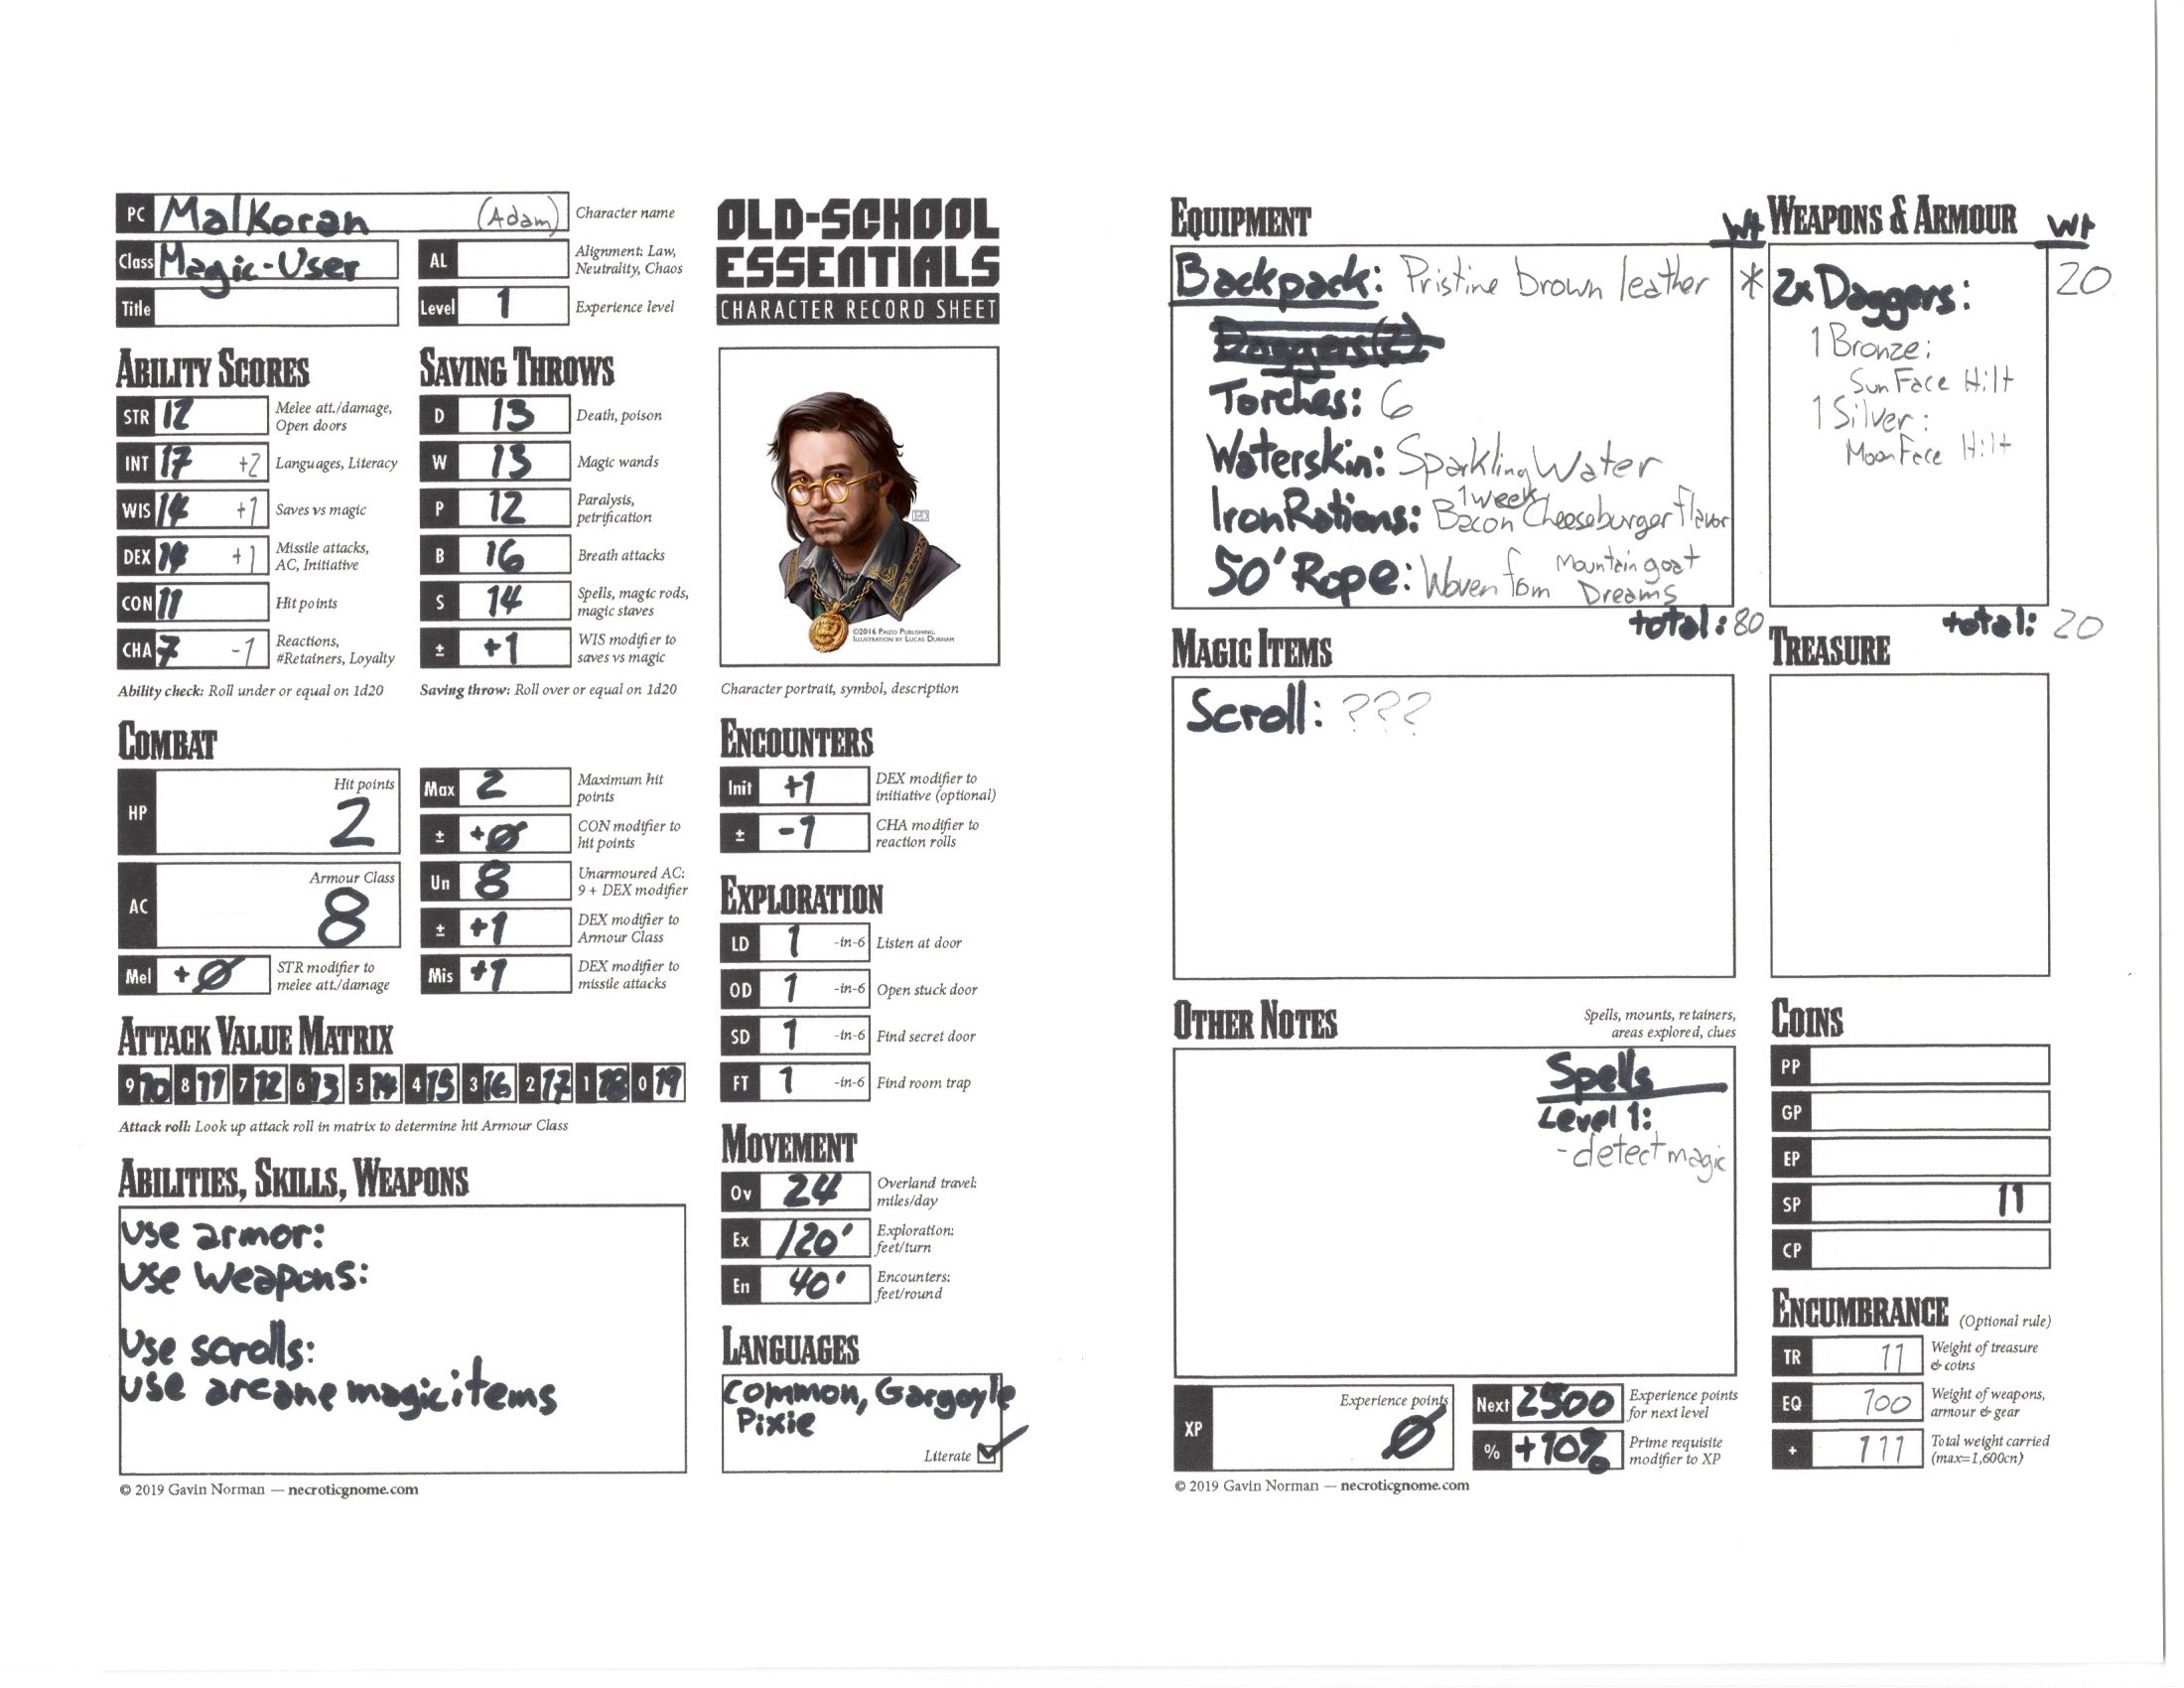 PC Malkoran (Adam) Character name
Class Magic-User AL Alignment: Law, Neutrality, Chaos
Title Level 1 Experience level
OLD-SCHOOL
ESSENTIALS
CHARACTER RECORD SHEET
ABILITY SCORES
STR 12 Melee att./damage, Open doors
INT 17 +2 Languages, Literacy
WIS 14 +1 Saves vs magic
DEX 14 +1 Missile attacks, AC, Initiative
CON 11 Hit points
CHA 7 -1 Reactions, #Retainers, Loyalty
Ability check: Roll under or equal on 1d20
SAVING THROWS
D 13 Death, poison
W 13 Magic wands
P 12 Paralysis, petrification
B 16 Breath attacks
S 14 Spells, magic rods, magic staves
± +1 WIS modifier to saves vs magic
Saving throw: Roll over or equal on 1d20
©2016 PAIZO PUBLISHING.
ILLUSTRATION BY LUCAS DURHAM
Character portrait, symbol, description
COMBAT
HP Hit points 2
AC Armour Class 8
Mel +0 STR modifier to melee att./damage
Max 2 Maximum hit points
± +0 CON modifier to hit points
Un 8 Unarmoured AC: 9 + DEX modifier
± +1 DEX modifier to Armour Class
Mis +1 DEX modifier to missile attacks
ENCOUNTERS
Init +1 DEX modifier to initiative (optional)
± -1 CHA modifier to reaction rolls
EXPLORATION
LD 1 -in-6 Listen at door
OD 1 -in-6 Open stuck door
SD 1 -in-6 Find secret door
FT 1 -in-6 Find room trap
ATTACK VALUE MATRIX
9 10 8 11 7 12 6 13 5 14 4 15 3 16 2 17 1 18 0 19
Attack roll: Look up attack roll in matrix to determine hit Armour Class
MOVEMENT
Ov 24 Overland travel: miles/day
Ex 120' Exploration: feet/turn
En 40' Encounters: feet/round
ABILITIES, SKILLS, WEAPONS
Use armor:
Use weapons:
Use scrolls:
Use arcane magic items
LANGUAGES
Common, Gargoyle
Pixie
Literate ✓
© 2019 Gavin Norman — necroticgnome.com
EQUIPMENT Wt
Backpack: Pristine brown leather *
Daggers(2):
Torches: 6
Waterskin: Sparkling Water
Iron Rations: 1 week Bacon Cheeseburger flavor
50' Rope: Woven fom Mountain goat Dreams
total: 80
WEAPONS & ARMOUR Wt
2x Daggers: 20
1 Bronze:
Sun Face Hilt
1 Silver:
Moon Face Hilt
total: 20
MAGIC ITEMS
Scroll: ???
TREASURE
OTHER NOTES Spells, mounts, retainers, areas explored, clues
Spells
Level 1:
- detect magic
COINS
PP
GP
EP
SP 11
CP
ENCUMBRANCE (Optional rule)
TR 11 Weight of treasure & coins
EQ 100 Weight of weapons, armour & gear
+ 111 Total weight carried (max=1,600cn)
XP Experience points 0
Next 2500 Experience points for next level
% +10% Prime requisite modifier to XP
© 2019 Gavin Norman — necroticgnome.com